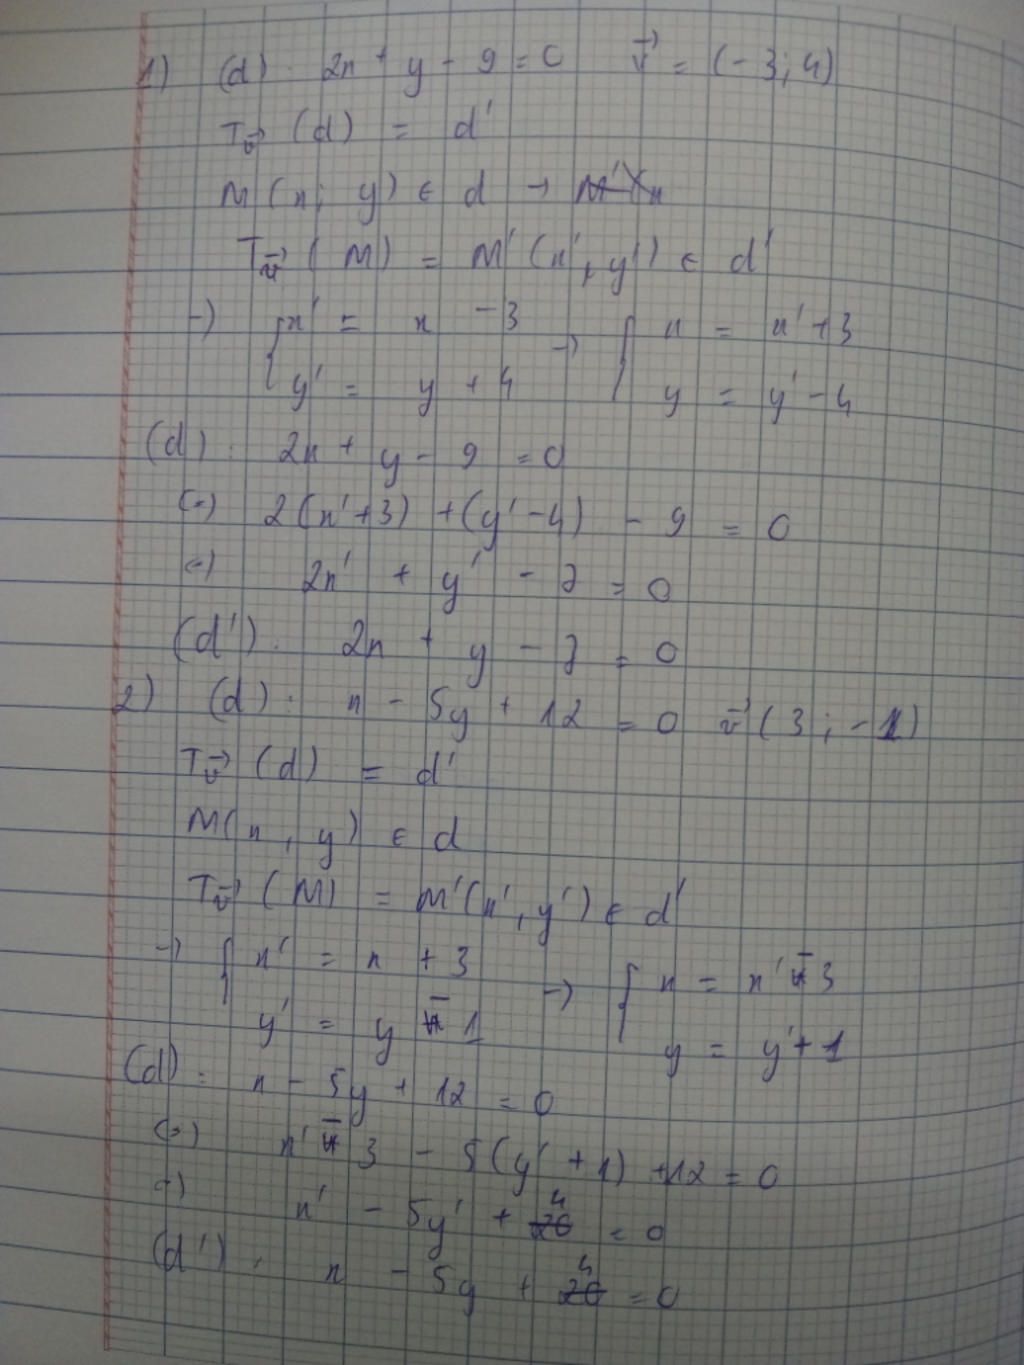 1) (d): 2x + y - 9 = 0 v⃗ = (-3; 4)
Tv⃗ (d) = d'
M(x; y) ∈ d →
Tv⃗ (M) = M'(x', y') ∈ d'
→) { x' = x - 3 → { x = x' + 3
y' = y + 4 y = y' - 4
(d): 2x + y - 9 = 0
(=) 2(x' + 3) + (y' - 4) - 9 = 0
(=) 2x' + y' - 7 = 0
(d'): 2x + y - 7 = 0
2) (d): x - 5y + 12 = 0 v⃗ (3; -1)
Tv⃗ (d) = d'
M(x, y) ∈ d
Tv⃗ (M) = M'(x', y') ∈ d'
→) { x' = x + 3 → { x = x' - 3
y' = y - 1 y = y' + 1
(d): x - 5y + 12 = 0
(=) x' - 3 - 5(y' + 1) + 12 = 0
(=) x' - 5y' + 4 = 0
(d'): x - 5y + 4 = 0